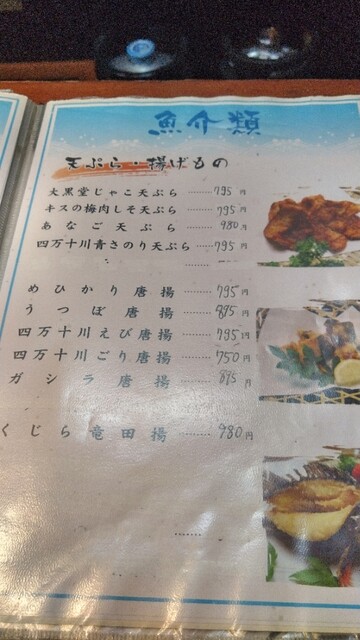 魚介類
天ぷら・揚げもの
大黒堂じゃこ天ぷら ……… 795円
キスの梅肉しそ天ぷら …… 795円
あなご天ぷら ……… 980円
四万十川青さのり天ぷら …… 795円
………
めひかり唐揚 ……… 795円
うつぼ唐揚 ……… 895円
四万十川えび唐揚 ……… 795円
四万十川ごり唐揚 ……… 750円
ガシラ唐揚 ……… 895円
くじら竜田揚 ……… 980円
………